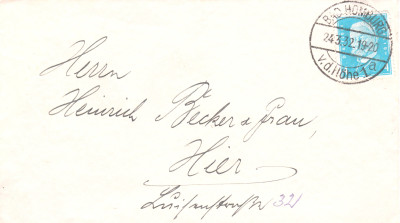 BAD HOMBURG
24.3.32.19-20
v.d.Höhe 1 a
Herrn
Heinrich Becker & Frau,
Hier.
Luisenstraße 321